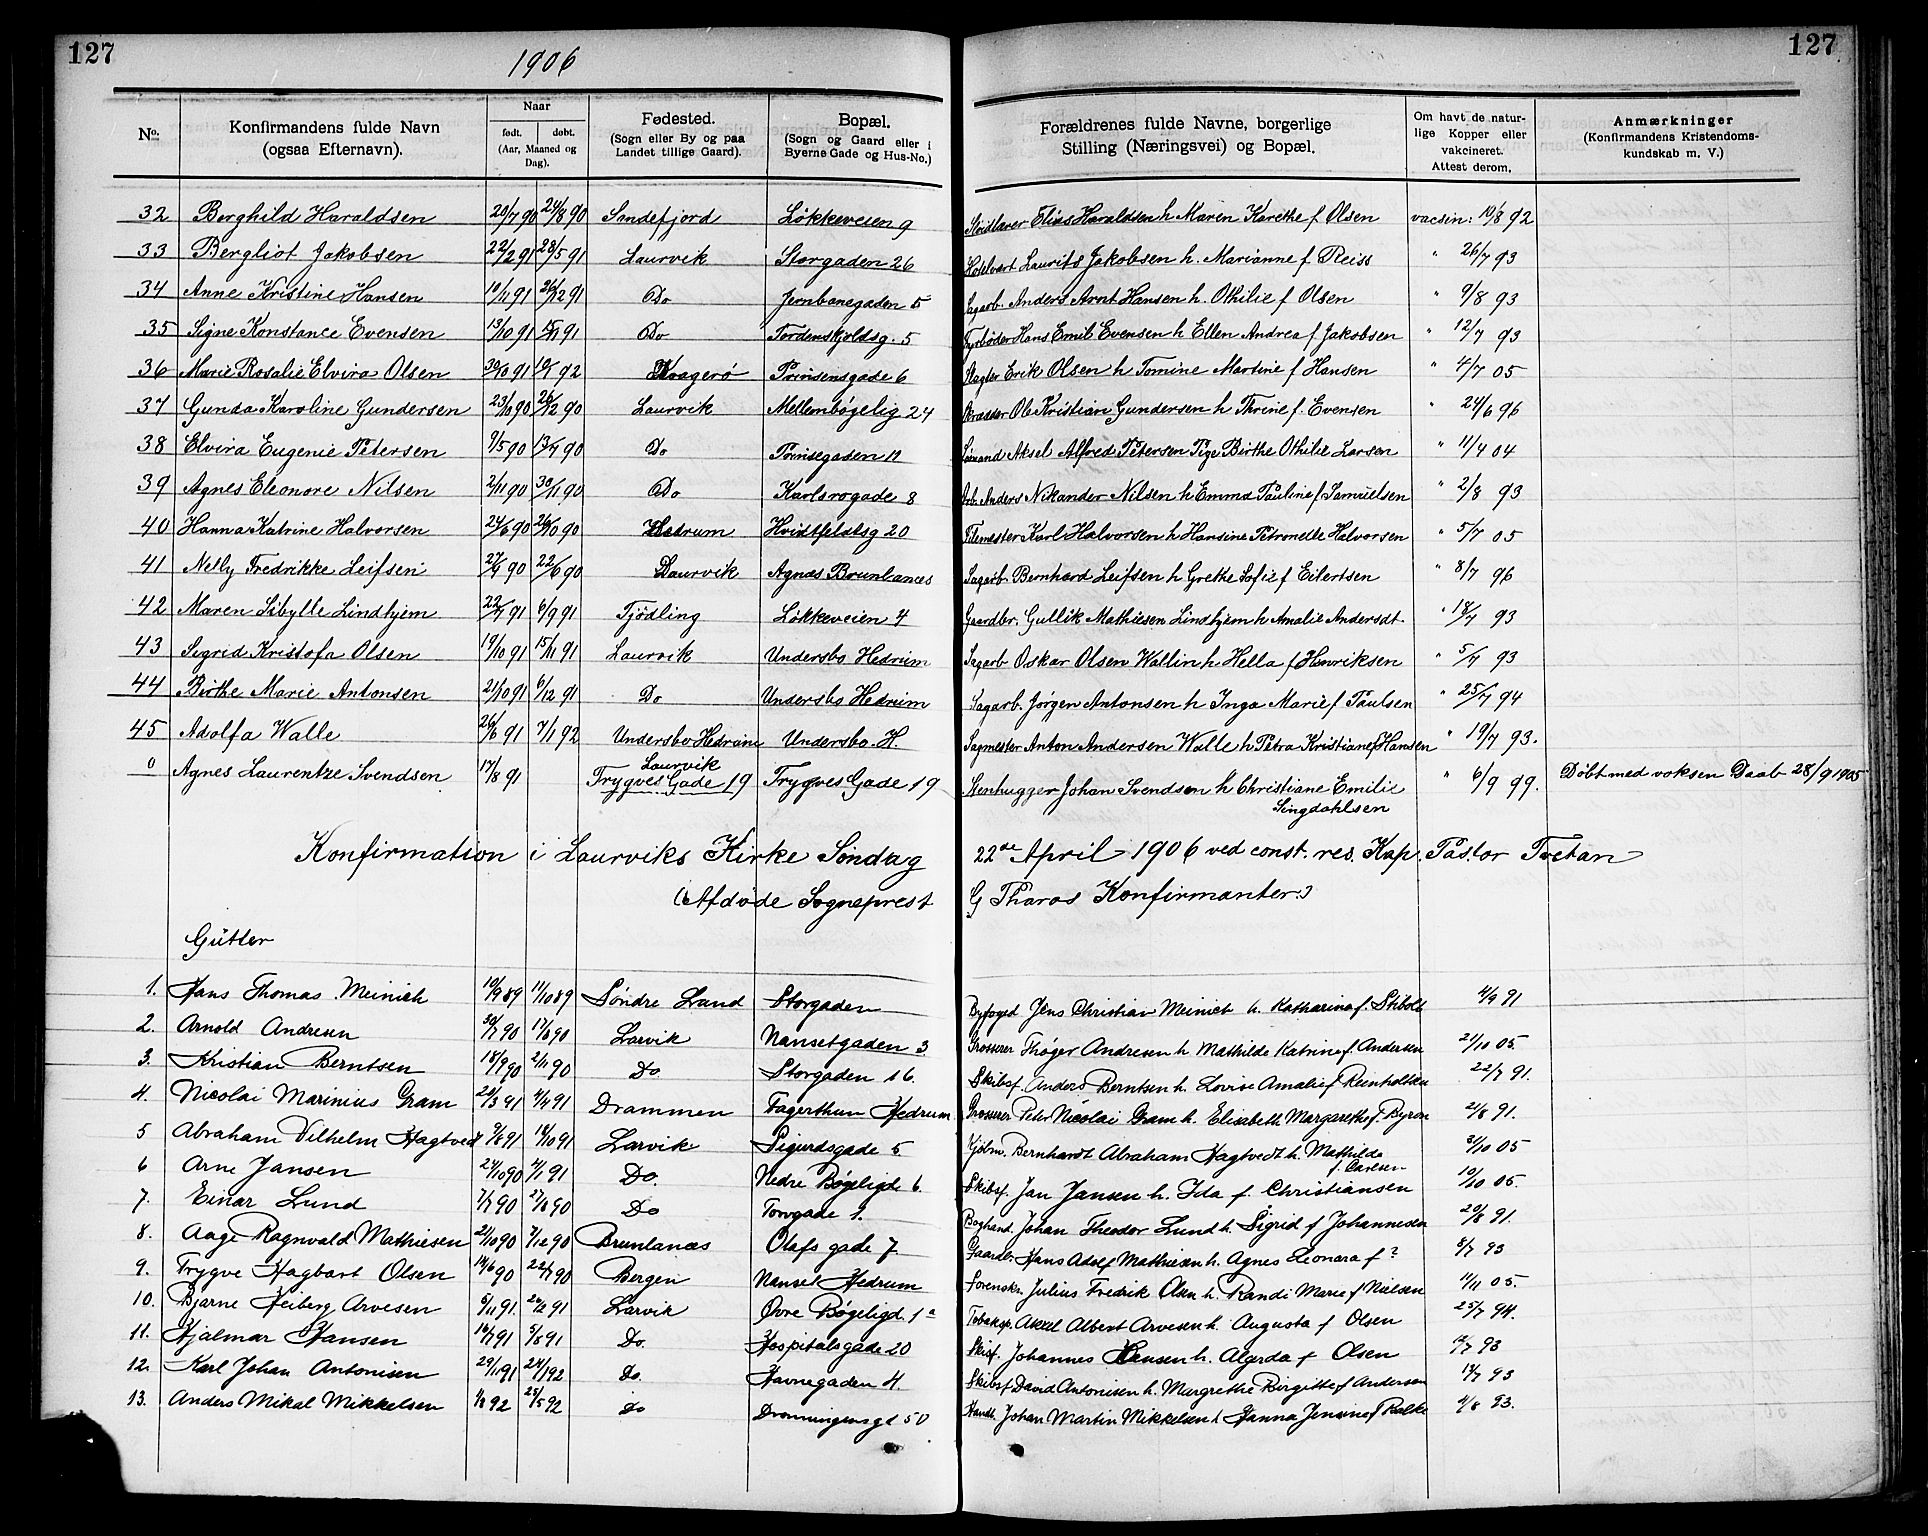 127
1906
127
No. | Konfirmandens fulde Navn (ogsaa Efternavn). | Naar født. døbt. (Aar, Maaned og Dag). | Fødested. (Sogn eller By og paa Landet tillige Gaard). | Bopæl. (Sogn og Gaard eller i Byerne Gade og Hus-No.) | Forældrenes fulde Navne, borgerlige Stilling (Næringsvei) og Bopæl. | Om havt de naturlige Kopper eller vakcineret. Attest derom. | Anmærkninger (Konfirmandens Kristendomskundskab m. V.)
32 Borghild Haraldsen 20/7 90 24/8 90 Sandefjord Løkkeveien 9 Elias Haraldsen h. Maren Karethe f Olsen vacsin: 19/8 92
33 Bergliot Jakobsen 22/2 91 28/5 91 Laurvik Storgaden 26 Laurits Jakobsen h. Marianne f Reiss " 26/7 93
34 Anne Kristine Hansen 10/11 91 26/12 91 Do Jernbanegaden 5 Sagarb. Anders Arnt Hansen h. Othilie f Olsen " 9/8 93
35 Signe Konstance Evensen 13/10 91 91 Do Tordenskjoldsg. 5 Fyrbøder Hans Emil Evensen h Ellen Andrea f Jakobsen " 12/7 93
36 Marie Rosalie Elvira Olsen 30/10 91 92 Kragerø Prinsensgade 6 Slagter Erik Olsen h Tomine Martine f Hansen " 4/7 05
37 Gunda Karoline Gundersen 23/10 90 26/12 90 Laurvik Mellembøgelig 24 Ole Kristian Gundersen h Thrine f. Evensen " 24/6 96
38 Elvira Eugenie Petersen 9/5 90 13/7 90 Do Prinsegaden 11 Sømand Aksel Alfred Petersen Pige Birthe Othilie Larsen " 11/4 04
39 Agnes Eleonore Nilsen 2/11 90 30/11 90 Do Karlsrogade 8 Arb. Anders Nikander Nilsen h Emma Pauline f Samuelsen " 2/8 93
40 Hanna Katrine Halvorsen 24/6 90 26/10 90 Hedrum Hvidtfeldtsg 20 Filemester Karl Halvorsen h Hansine Petronelle Halvorsen " 5/7 05
41 Nelly Fredrikke Leifsen 27/4 90 22/6 90 Laurvik Agnes Brunlanæs Sagarb. Bernhard Leifsen h Grethe Sofie f Eilertsen " 8/7 96
42 Maren Sibylle Lindhjem 22/7 91 6/9 91 Tjødling Løkkeveien 4 Gaardbr. Gullik Mathiesen Lindhjem h Amalie Andersdt. " 18/7 93
43 Sigrid Kristofa Olsen 19/10 91 15/11 91 Laurvik Undersbo Hedrum Sagarb Oskar Olsen Wallin h Hella f Henriksen " 5/7 93
44 Birthe Marie Antonsen 21/10 91 6/12 91 Do Undersbo Hedrum Sagarb. Jørgen Antonsen h Inga Marie f Paulsen " 25/7 94
45 Adolfa Walle 26/6 91 7/1 92 Undersbo Hedrum Undersbo. H. Sagmester Anton Andersen Walle h Petra Kristiane f Hansen " 19/7 93.
0 Agnes Laurentze Svendsen 17/8 91 Laurvik Trygves Gade 19 Trygves Gade 19 Stenhugger Johan Svendsen h Christiane Emilie Singdahlsen " 6/9 99. Døbt med voksen Daab 28/9 1905
Konfirmation i Laurviks Kirke Søndag 22de April 1906 ved const. res. Kap. Pastor Tvetan
(Afdøde Sogneprest G Tharos Konfirmanter:)
Gutter
1. Hans Thomas Meinich 10/9 89 11/10 89 Søndre Land Storgaden Byfoged Jens Christian Meinich h. Katharina f. Stibolt 4/9 91
2. Arnold Andresen 30/7 90 17/8 90 Larvik Nansetgaden 3 Grosserer Thøger Andresen h Mathilde Katrine f. Andersen 21/10 05.
3. Kristian Berntsen 18/9 90 2/11 90 Do Storgaden 16. Skibsf. Anders Berntsen h. Lovise Amalie f Reinholtsen 22/7 91.
4. Nicolai Marinius Gram 20/3 91 4/4 91 Drammen Fagerthun Hedrum Grosserer Peter Nicolai Gram h. Elisabeth Margarethe f. Byron 21/8 91.
5 Abraham Vilhelm Hagtvedt 9/8 91 18/10 91 Larvik Sigurdsgade 5 Kjøbm. Bernhardt Abraham Hagtvedt h. Mathilde f. Carlsen 31/10 05
6 Arne Jansen 24/10 90 4/1 91 Do. Nedre Bøgeligd 6 Skibsf. Jan Jansen h. Ida f. Christiansen 10/10 05.
7. Einar Lund 7/7 90 27/8 90 Do Torvgade 1. Boghand. Johan Theodor Lund h. Sigrid f Johannesen 20/8 91.
8. Aage Ragnvald Mathiesen 21/10 90 7/12 90 Brunlanæs Olafs gade 7 Gaardbr. Hans Adolf Mathiesen h. Agnes Leonara f ? 8/7 93
9. Trygve Hagbart Olsen 14/6 90 22/7 90 Bergen Nanset Hedrum Sorenskr. Julius Fredrik Olsen h. Randi Marie f Nielsen 11/11 05.
10. Bjarne Heiberg Arvesen 5/11 91. 91 Larvik Øvre Bøgeligd. 1a Tobaksp. Akkel Albert Arvesen h. Augusta f Olsen 25/7 94.
11. Hjalmar Hansen 16/7 91 5/8 91 Do. Hospitalsgade 20 Skisf. Johannes Hansen h. Algerda f Olsen 12/7 93
12. Karl Johan Antonisen 29/11 91 24/1 92 Do. Havnegaden 4. Skibsf David Antonisen h. Margrethe Birgitte f Andersen 14/7 93
13. Anders Mikal Mikkelsen 1/3 92 25/5 92 Do Dronningensgd 50 Handl. Johan Martin Mikkelsen h Hanna Jensine f Rakke 4/8 93.